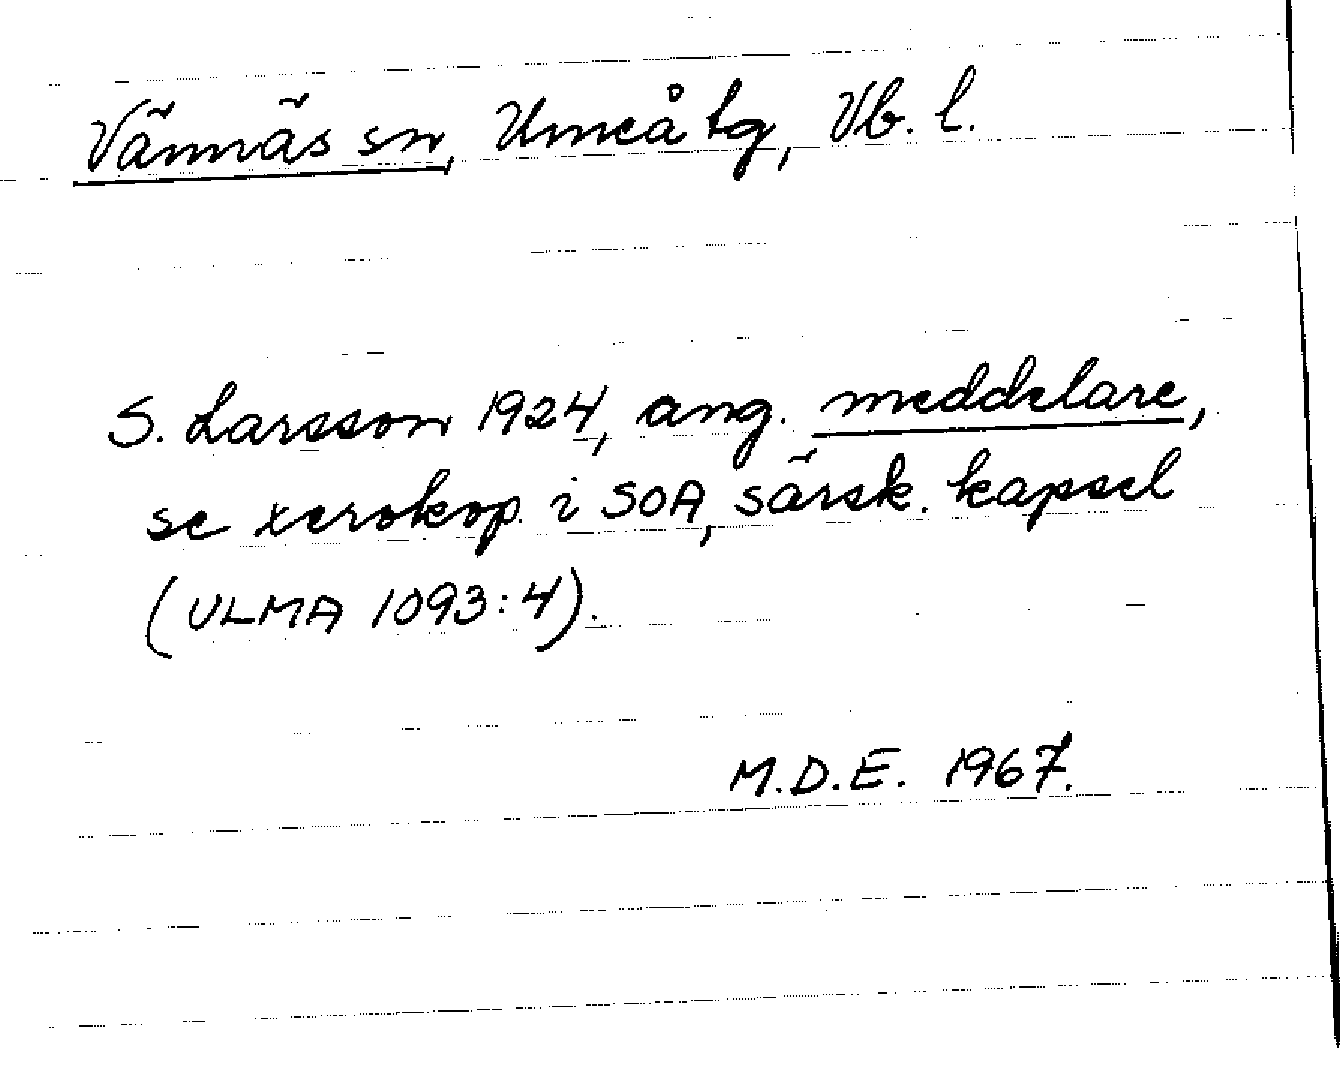 Vännäs sn, Umeå tg, Vb. l.
S. Larsson 1924, ang. meddelare,
se xerokop. i SOA, särsk. kapsel
(ULMA 1093:4).
M.D.E. 1967.